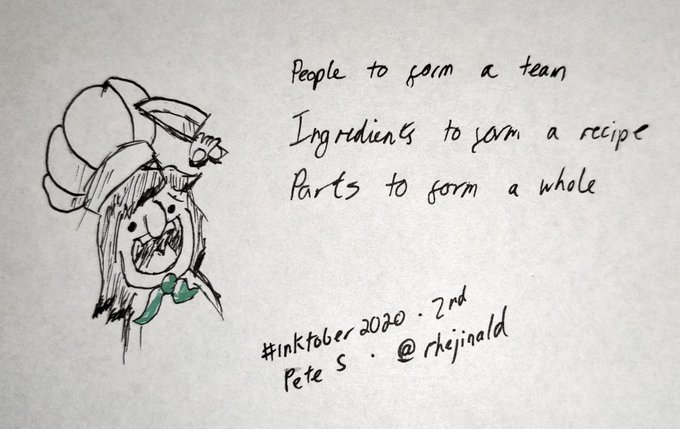 People to form a team
Ingredients to form a recipe
Parts to form a whole
#inktober2020 · 2nd
Pete S · @rhejinald